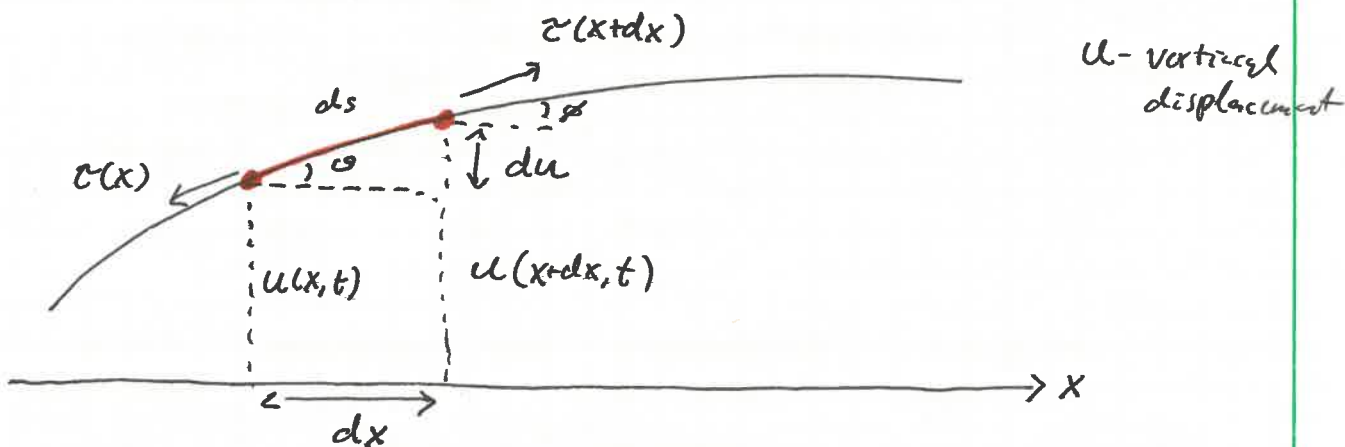 τ(x+dx)
u - vertical
displacement
ds
ϕ
τ(x)
θ
du
u(x,t)
u(x+dx,t)
x
dx